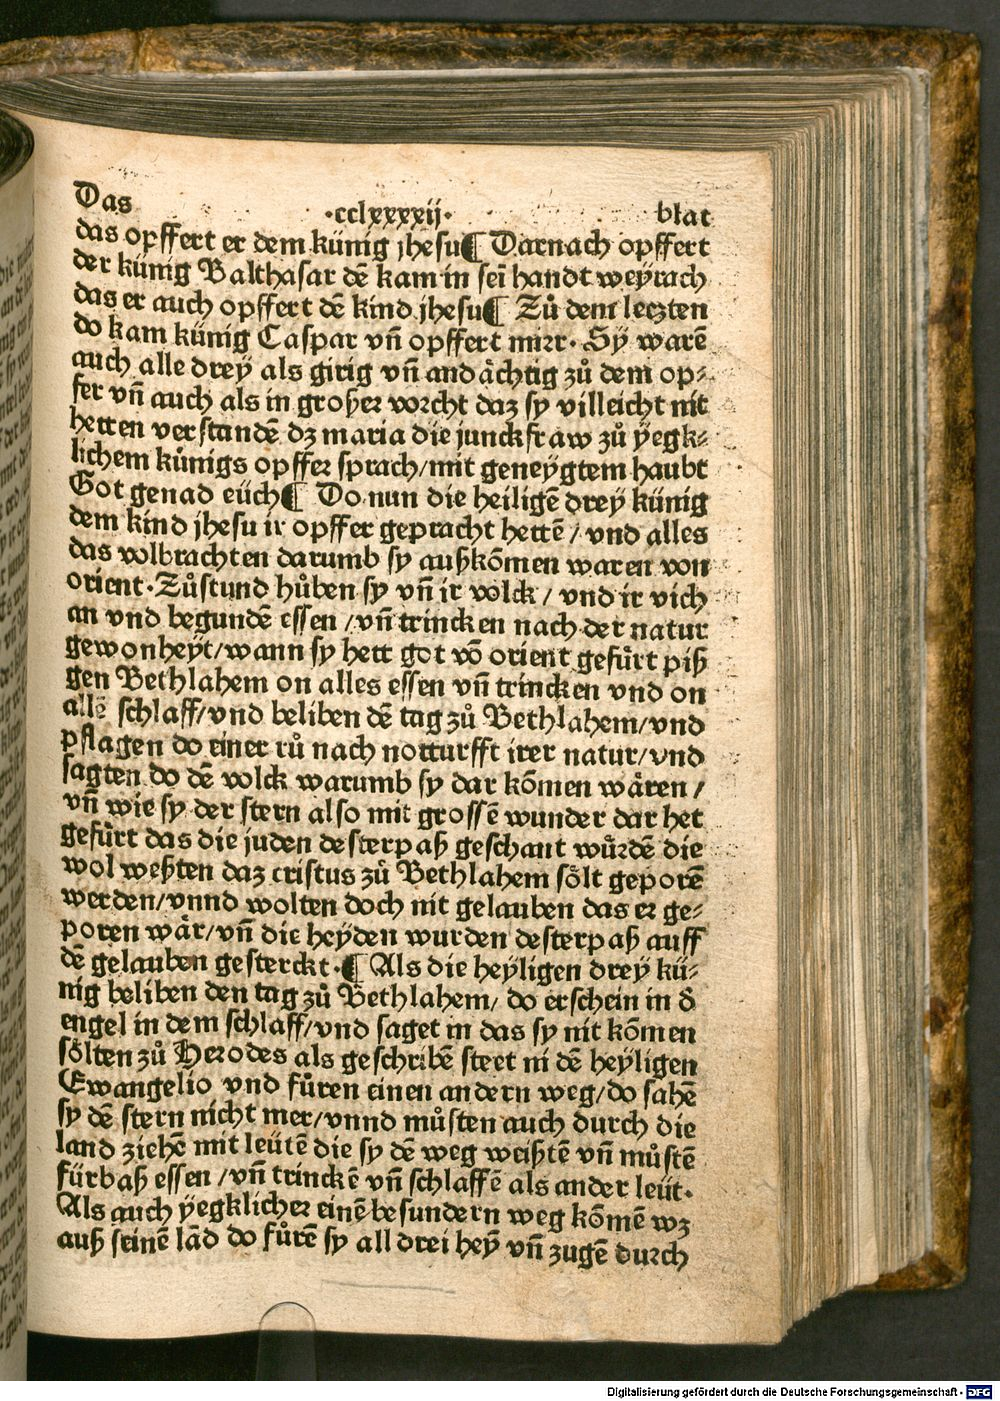 Das ·cclxxxxij· blat
das opffert er dem künig jhesu¶ Darnach opffert
der künig Balthasar dē kam in sei handt weÿrach
das er auch opffert dē kind jhesu¶ Zů dem leczten
do kam künig Caspar vn̄ opffert mirr· Sÿ warē
auch alle dreÿ als girig vn̄ andächtig zů dem op⸗
fer vn̄ auch als in großer vorcht daz sy villeicht nit
hetten verstandē dz maria die junckfraw zů ÿegk⸗
lichem künigs opffer sprach/mit geneÿgtem haubt
Got genad eüch¶ Do nun die heiligē dreÿ künig
dem kind jhesu ir opffer gepracht hettē/ vnd alles
das volbrachten darumb sy außkōmen waren von
orient·Zůstund hůben sy vn̄ ir volck/ vnd ir vich
an vnd begundē essen /vn̄ trincken nach der natur
gewonheÿt/wann sy hett got vō orient gefürt piß
gen Bethlahem on alles essen vn̄ trincken vnd on
allē schlaff/vnd beliben dē tag zů Bethlahem/vnd
pflagen do einer rů nach notturfft irer natur/vnd
sagten do dē volck warumb sy dar kōmen wären /
vn̄ wie sy der stern also mit grossē wunder dar het
gefürt das die juden desterpaß geschant würdē die
wol weßten daz cristus zů Bethlahem sölt geporē
werden/vnnd wolten doch nit gelauben das er ge⸗
poren wär/vn̄ die heÿden wurden desterpaß auff
dē gelauben gesterckt·¶ Als die heÿligen dreÿ kü⸗
nig beliben den tag zů Bethlahem/ do erschein in ď
engel in dem schlaff/vnd saget in das sy nit kōmen
sölten zů Herodes als geschribē steet ni dē heÿligen
Ewangelio vnd fůren einen andern weg/do sahē
sy dē stern nicht mer/vnnd můsten auch durch die
land ziehē mit leütē die sy dē weg weißtē vn̄ můstē
fürbaß essen /vn̄ trinckē vn̄ schlaffē als ander leüt·
Als auch ÿegklicher einē besundern weg kōmē wz
auß seinē lād do fůrē sy all drei heÿ vn̄ zugē durch
Digitalisierung gefördert durch die Deutsche Forschungsgemeinschaft - DFG